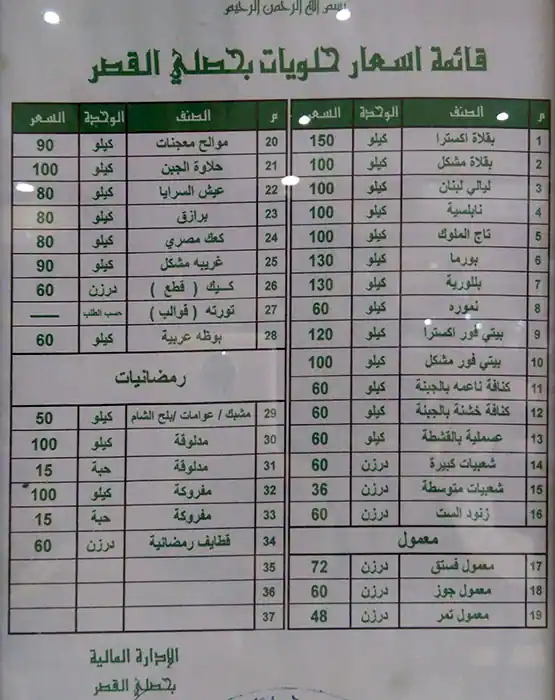 بسم الله الرحمن الرحيم
قائمة اسعار حلويات بحصلي القصر
م الصنف الوحدة السعر
1 بقلاة اكسترا كيلو 150
2 بقلاة مشكل كيلو 100
3 ليالي لبنان كيلو 100
4 نابلسية كيلو 100
5 تاج الملوك كيلو 100
6 بورما كيلو 130
7 بللورية كيلو 130
8 نموره كيلو 60
9 بيتي فور اكسترا كيلو 120
10 بيتي فور مشكل كيلو 100
11 كنافة ناعمه بالجبنة كيلو 60
12 كنافة خشنة بالجبنة كيلو 60
13 عسملية بالقشطة كيلو 60
14 شعبيات كبيرة درزن 60
15 شعبيات متوسطة درزن 36
16 زنود الست درزن 60
معمول
17 معمول فستق درزن 72
18 معمول جوز درزن 60
19 معمول تمر درزن 48
م الصنف الوحدة السعر
20 موالح معجنات كيلو 90
21 حلاوة الجبن كيلو 100
22 عيش السرايا كيلو 80
23 برازق كيلو 80
24 كعك مصري كيلو 80
25 غريبه مشكل كيلو 90
26 كـيـك ( قطع ) درزن 60
27 تورته ( قوالب ) حسب الطلب —
28 بوظه عربية كيلو 60
رمضانيات
29 مشبك / عوامات /بلح الشام كيلو 50
30 مدلوقة كيلو 100
31 مدلوقة حبة 15
32 مفروكة كيلو 100
33 مفروكة حبة 15
34 قطايف رمضانية درزن 60
35
36
37
الإدارة المالية
بحصلي القصر